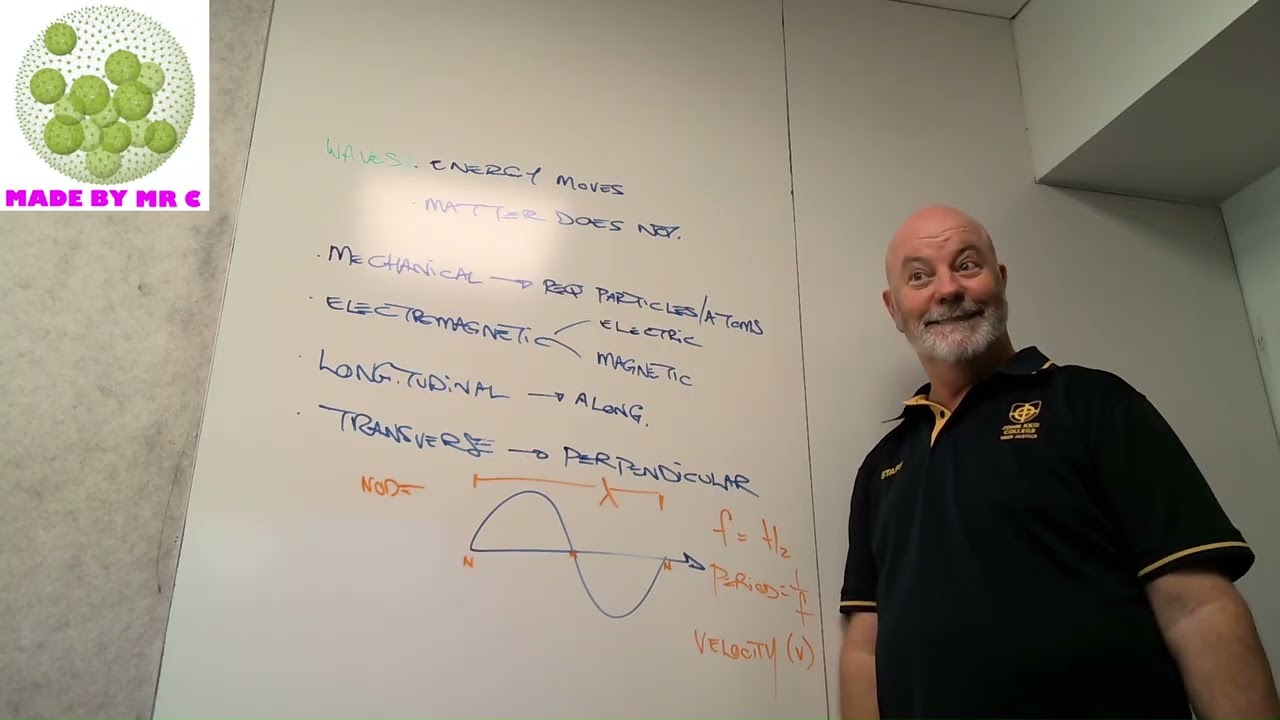 MADE BY MR C
WAVES: ENERGY MOVES
· MATTER DOES NOT.
· MECHANICAL → REQ PARTICLES/ATOMS
· ELECTROMAGNETIC
ELECTRIC
MAGNETIC
· LONGITUDINAL → ALONG.
· TRANSVERSE → PERPENDICULAR
NODE
λ
N
N
N
f =
PERIOD = 1/f
VELOCITY (v)
STAFF
COLLEGE
SEEK JUSTICE